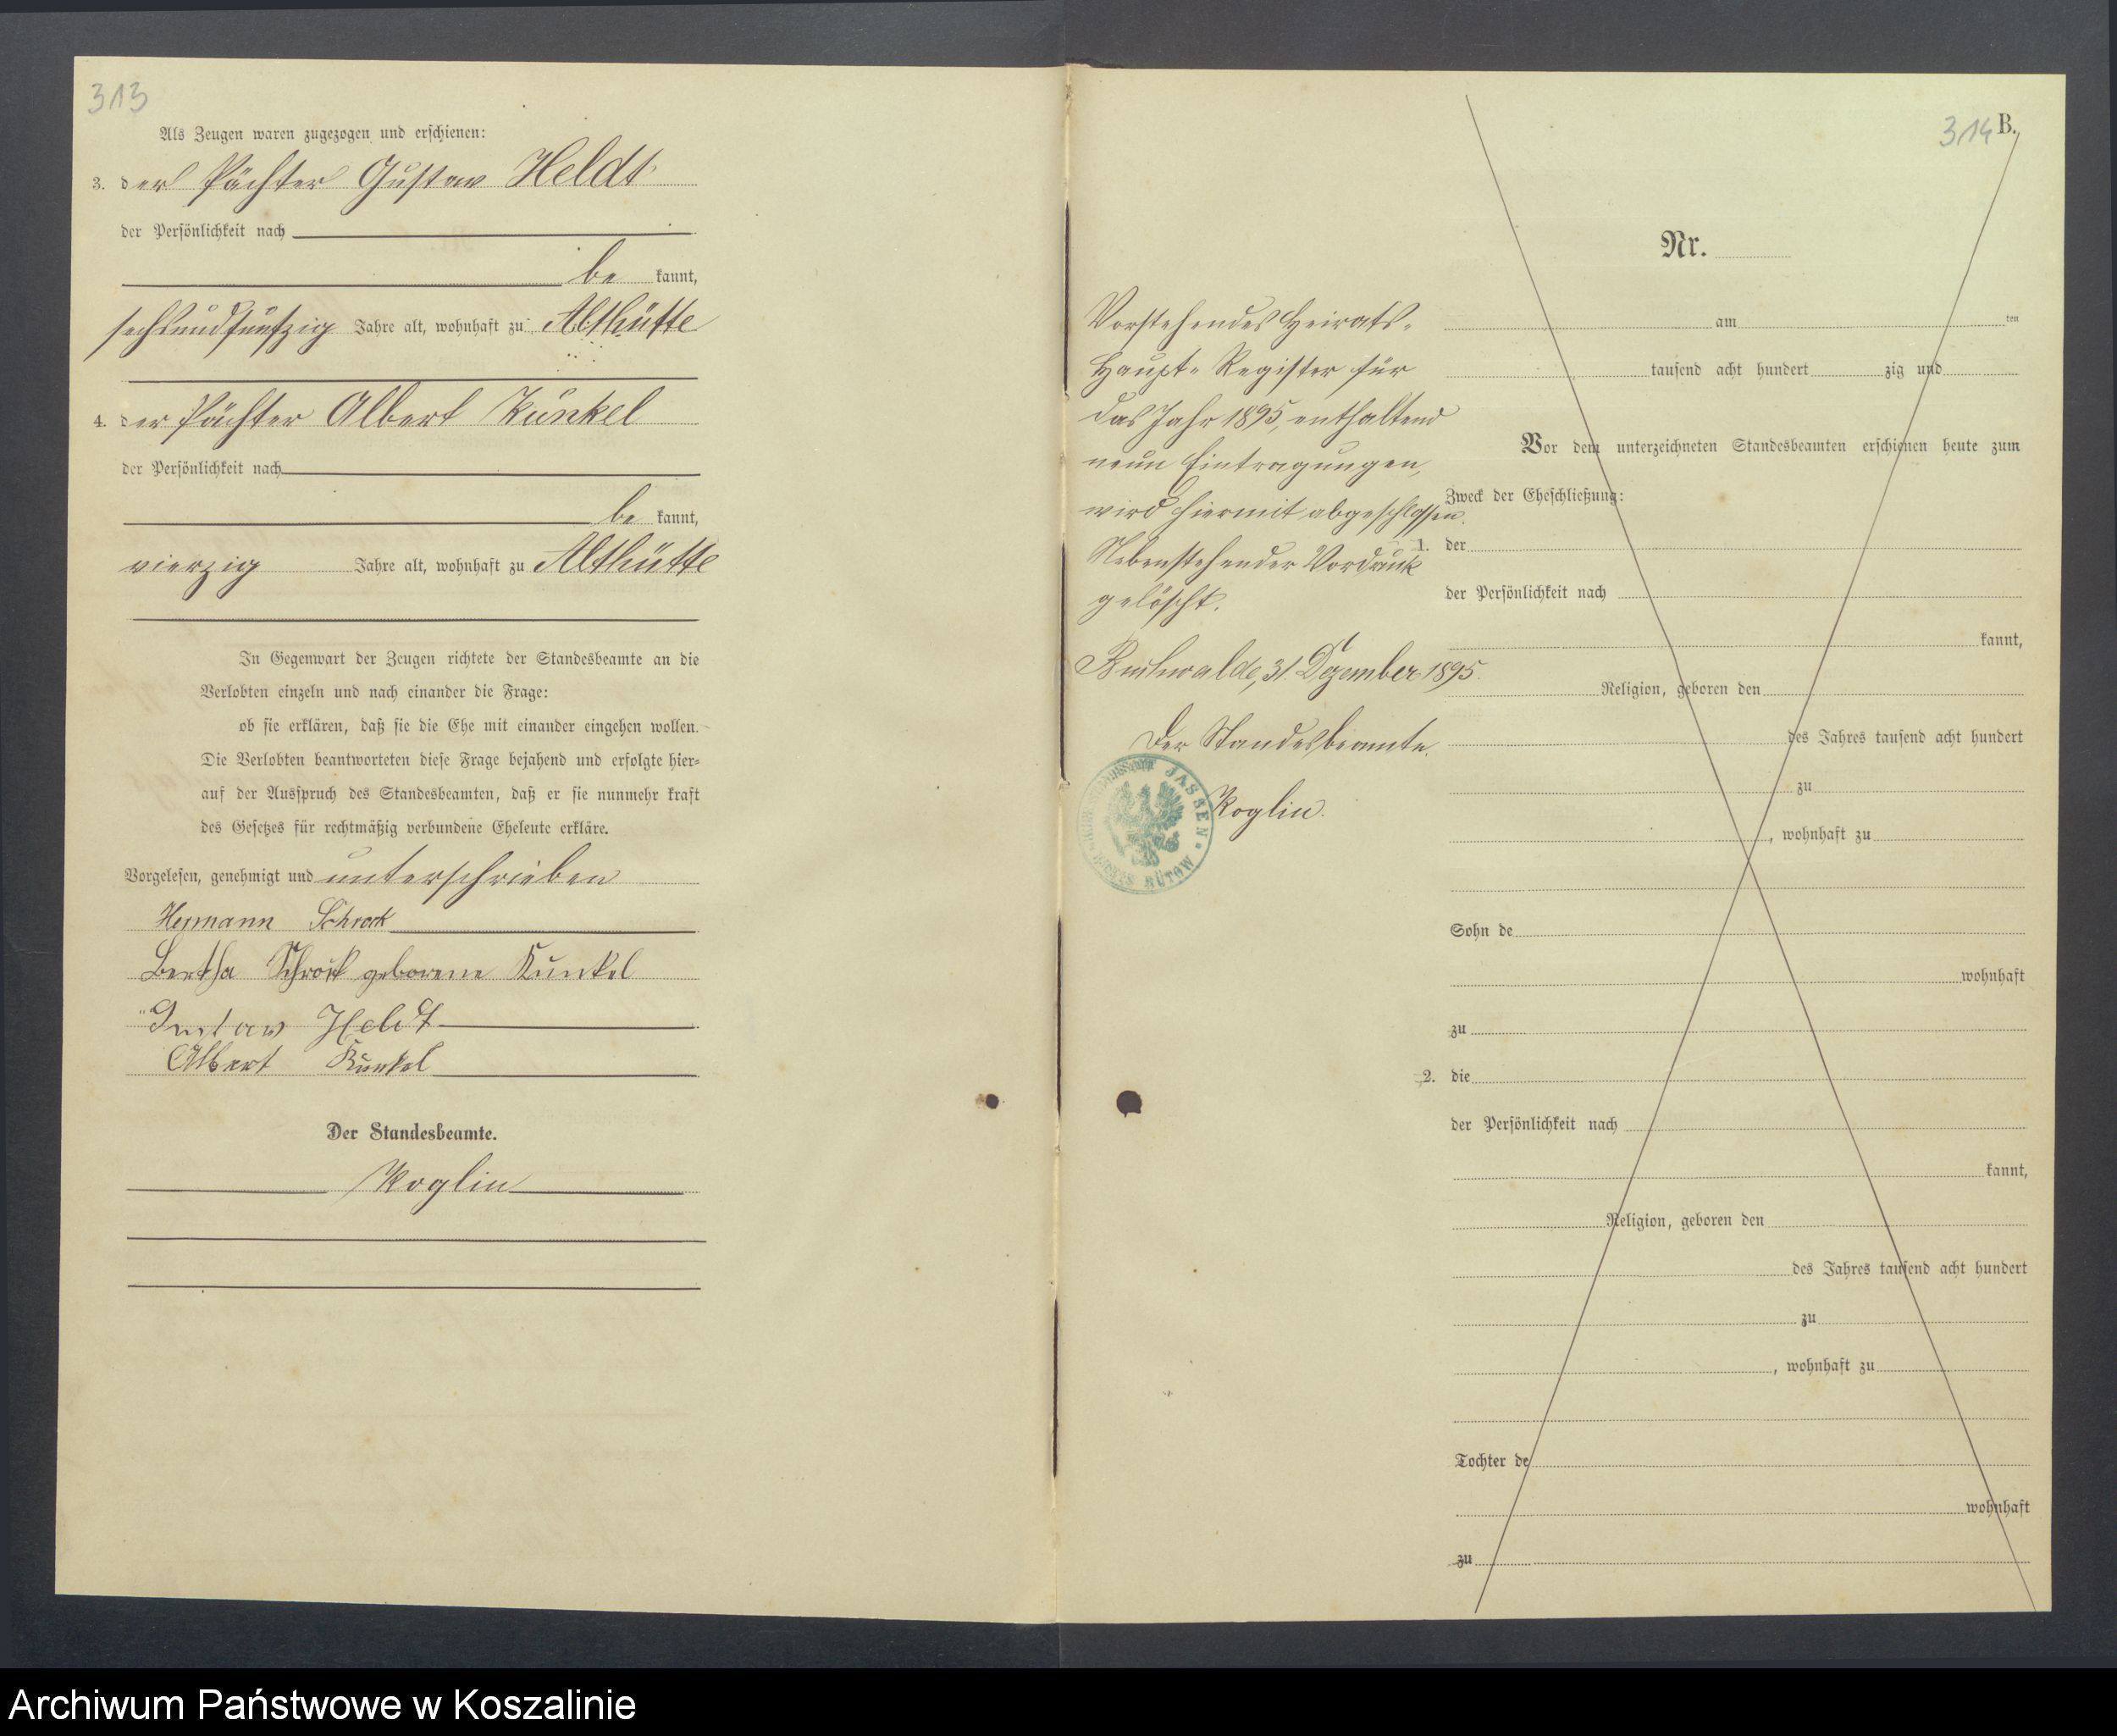 313
Als Zeugen waren zugezogen und erschienen:
3. der Pächter Gustav Heldt
der Persönlichkeit nach
be kannt,
sechsundfünfzig Jahre alt, wohnhaft zu Althütte
4. der Pächter Albert Kunkel
der Persönlichkeit nach
be kannt,
vierzig Jahre alt, wohnhaft zu Althütte
In Gegenwart der Zeugen richtete der Standesbeamte an die
Verlobten einzeln und nach einander die Frage:
ob sie erklären, daß sie die Ehe mit einander eingehen wollen.
Die Verlobten beantworteten diese Frage bejahend und erfolgte hier-
auf der Ausspruch des Standesbeamten, daß er sie nunmehr kraft
des Gesetzes für rechtmäßig verbundene Eheleute erkläre.
Vorgelesen, genehmigt und unterschrieben
Hermann Schrock
Bertha Schrock geborene Kunkel
Gustav Heldt
Albert Kunkel
Der Standesbeamte.
Koglin
314 B.
Nr.
Vorstehendes Heirats-
Haupt-Register für
das Jahr 1895, enthaltend
neun Eintragungen,
wird hiermit abgeschlossen.
Nebenstehender Vordruck
gelöscht.
Buchwalde, 31. Dezember 1895.
Der Standesbeamte.
Koglin.
JASSEN
BÜTOW
am ten
tausend acht hundert zig und
Vor dem unterzeichneten Standesbeamten erschienen heute zum
Zweck der Eheschließung:
1. der
der Persönlichkeit nach
kannt,
Religion, geboren den
des Jahres tausend acht hundert
zu
, wohnhaft zu
Sohn de
wohnhaft
zu
2. die
der Persönlichkeit nach
kannt,
Religion, geboren den
des Jahres tausend acht hundert
zu
, wohnhaft zu
Tochter de
wohnhaft
zu
Archiwum Państwowe w Koszalinie